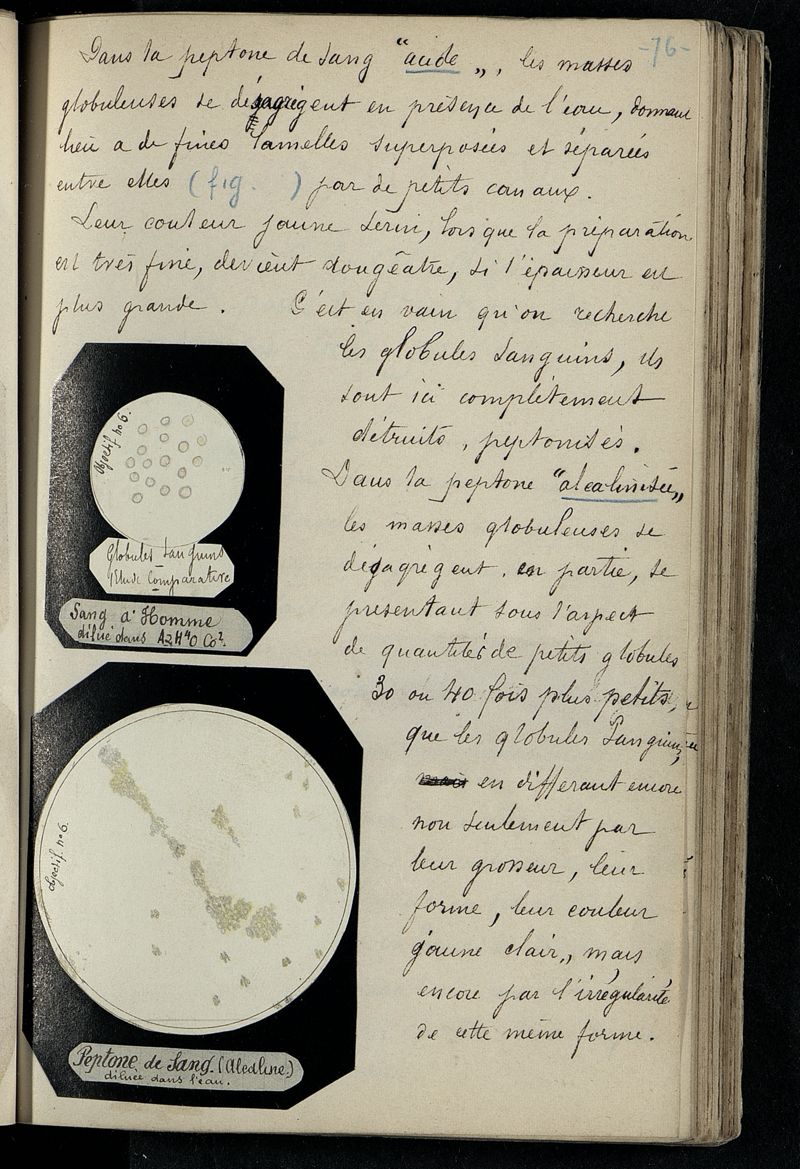 -76-
Dans la peptone de Sang "acide", les masses
globuleuses se désagrègent en présence de l'eau, donnant
lieu a de fines lamelles superposées et séparées
entre elles (fig. ) par de petits canaux.
Leur couleur jaune serin, lorsque la préparation
est très fine, devient rougeâtre, si l'épaisseur est
plus grande. C'est en vain qu'on recherche
les globules sanguins, ils
sont ici complètement
détruits, peptonisés.
Dans la peptone "alcalinisée"
les masses globuleuses se
désagrègent, en partie, se
présentant sous l'aspect
de quantités de petits globules
30 ou 40 fois plus petits,
que les globules Sanguins,
en différant encore
non seulement par
leur grosseur, leur
forme, leur couleur
jaune clair, mais
encore par l'irrégularité
de cette même forme.
Objectif no 6.
Globules Sanguins
Etude Comparative
Sang d'Homme
dilué dans AzH4O Co2.
Objectif. no 6.
Peptone de Sang. (Alcaline)
diluée dans l'eau.